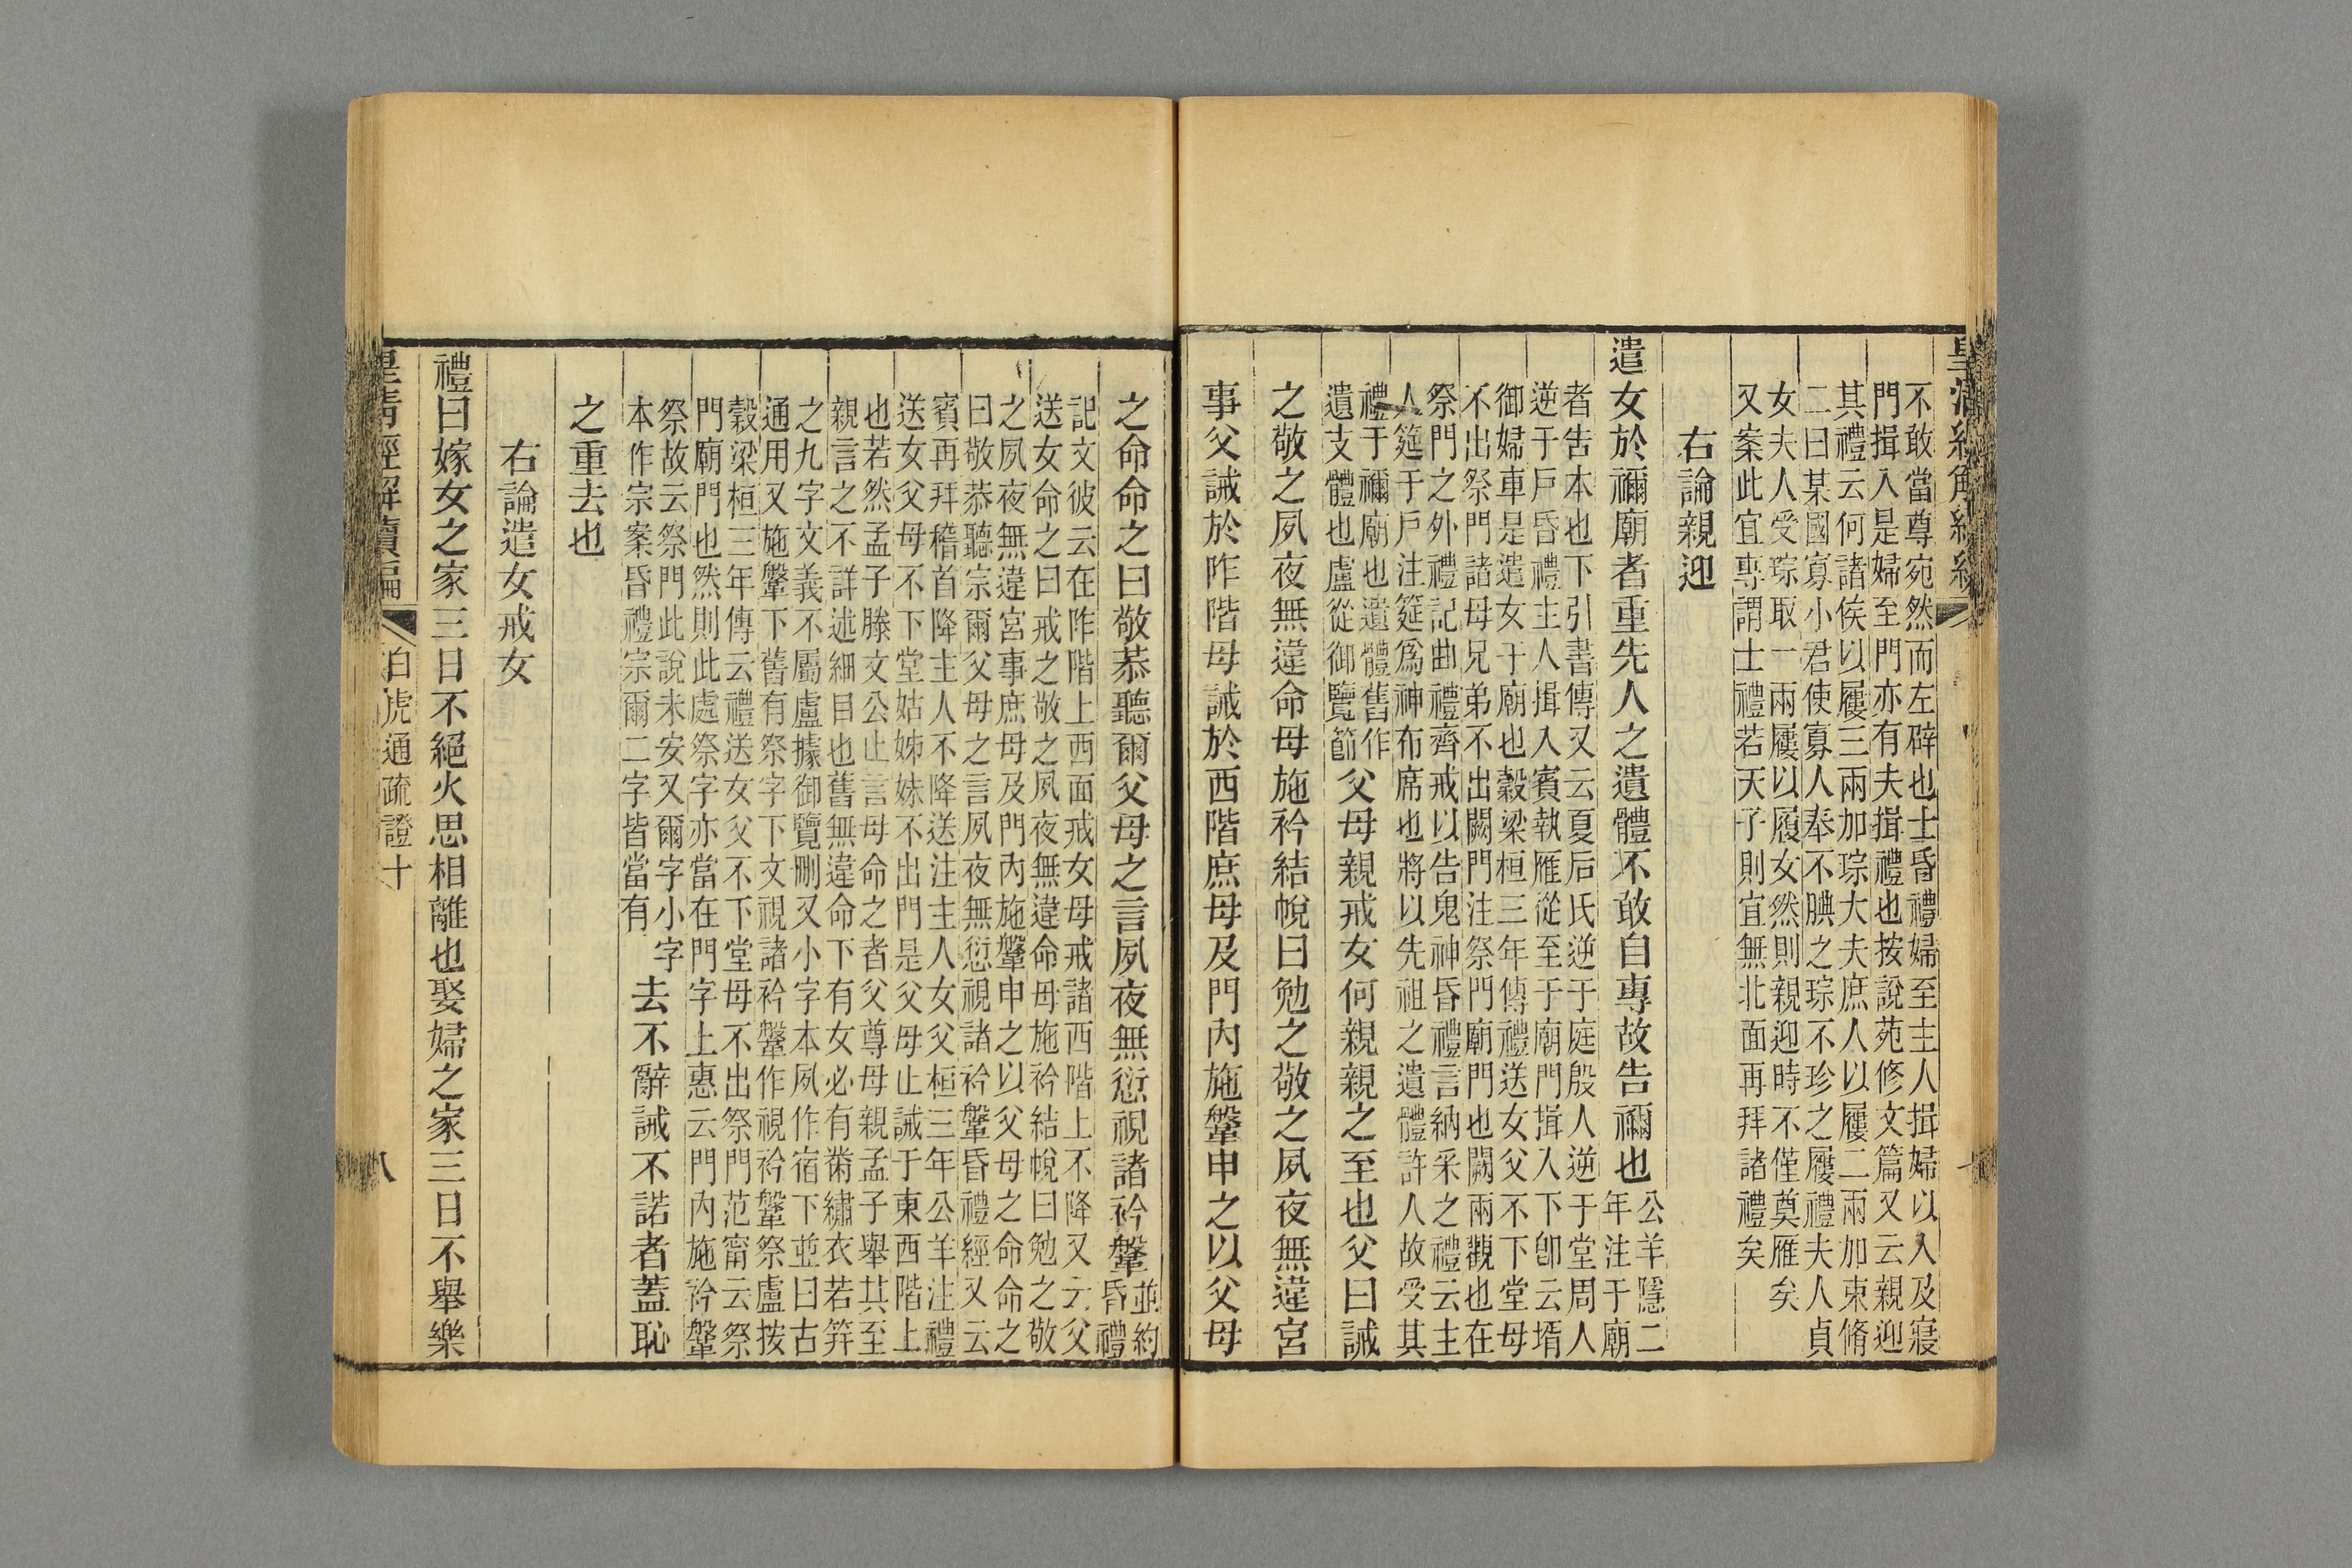 不敢當尊宛然而左辟也士昏禮婦至主人揖婦以入及寢
門揖入是婦至門亦有夫揖禮也按說苑修文篇又云親迎
其禮云何諸侯以屨三兩加琮大夫庶人以屨二兩加束脩
二曰某國寡小君使寡人奉不腆之琮不珍之屨禮夫人貞
女夫人受琮取一兩屨以履女然則親迎時不僅奠雁矣
又案此宜專謂士禮若天子則宜無北面再拜諸禮矣
右論親迎
遣女於禰廟者重先人之遺體不敢自專故告禰也公羊隱二
年注于廟
者吿本也下引書傳又云夏后氏逆于庭殷人逆于堂周人
逆于戶昏禮主人揖入賓執雁從至于廟門揖入下卽云壻
御婦車是遣女于廟也穀梁桓三年傳禮送女父不下堂母
不出祭門諸母兄弟不出闕門注祭門廟門也闕兩觀也在
祭門之外禮記曲禮齊戒以告鬼神昏禮言納采之禮云主
人筵于戶注筵爲神布席也將以先祖之遺體許人故受其
禮于禰廟也遺體舊作
遺支體也盧從御覽節父母親戒女何親親之至也父曰誡
之敬之夙夜無違命母施衿結帨曰勉之敬之夙夜無違宮
事父誡於阼階母誡於西階庶母及門內施鞶申之以父母
之命命之曰敬恭聽爾父母之言夙夜無愆視諸衿鞶並約
昏禮
記文彼云在阼階上西面戒女母戒諸西階上不降又云父
送女命之曰戒之敬之夙夜無違命母施衿結帨曰勉之敬
之夙夜無違宮事庶母及門內施鞶申之以父母之命命之
曰敬恭聽宗爾父母之言夙夜無愆視諸衿鞶昏禮經又云
賓再拜稽首降主人不降送注主人女父桓三年公羊注禮
送女父母不下堂姑姊妹不出門是父母止誡于東西階上
也若然孟子滕文公止言母命之者父尊母親孟子舉其至
親言之不詳述細目也舊無違命下有女必有黹繡衣若笄
之九字文義不屬盧據御覽刪又小字本夙作宿下並曰古
通用又施鞶下舊有祭字下文視諸衿鞶作視衿鞶祭盧按
穀梁桓三年傳云禮送女父不下堂母不出祭門范甯云祭
門廟門也然則此處祭字亦當在門字上惠云門內施衿鞶
祭故云祭門此說未安又爾字小字
本作宗案昏禮宗爾二字皆當有去不辭誡不諾者蓋恥
之重去也
右論遣女戒女
禮曰嫁女之家三日不絕火思相離也娶婦之家三日不舉樂
皇清經解續編 白虎通疏證十 八